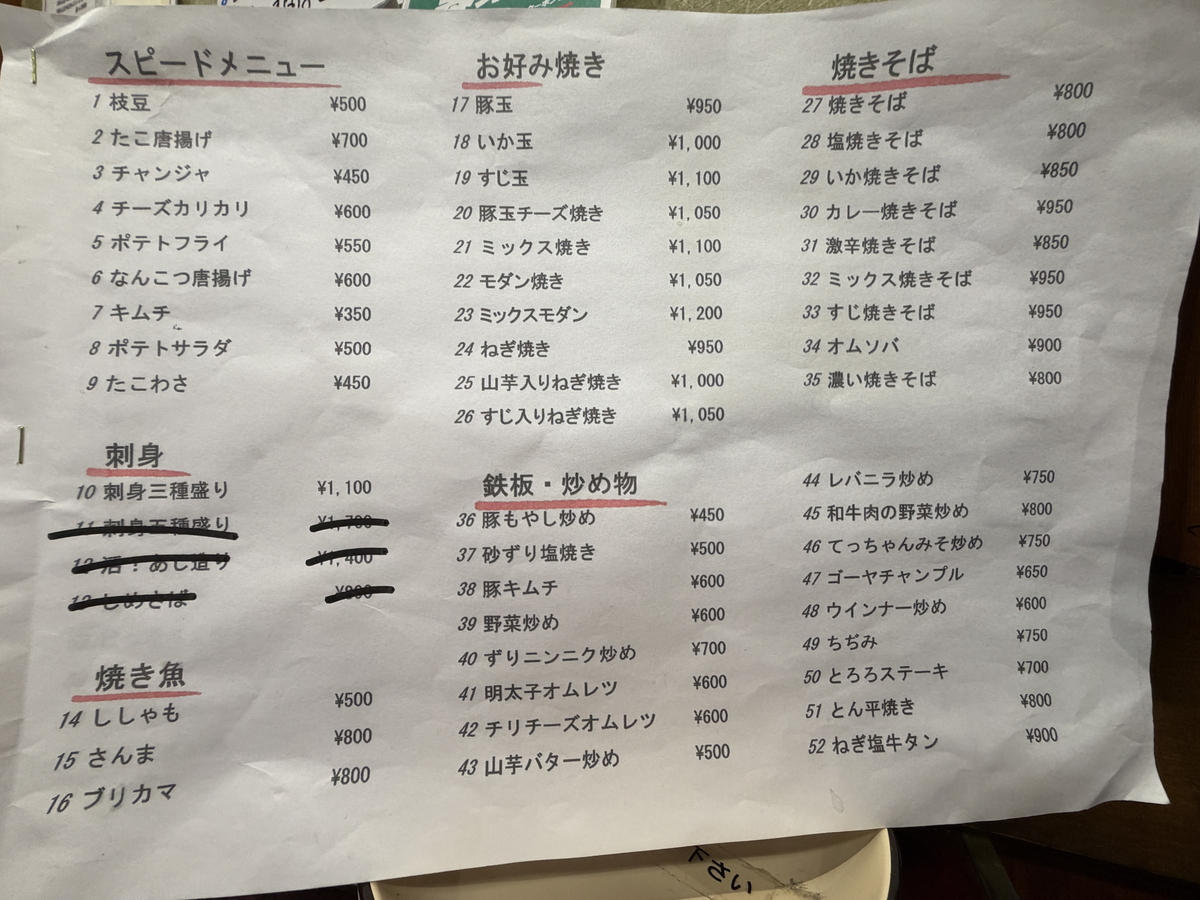 スピードメニュー
1 枝豆 ¥500
2 たこ唐揚げ ¥700
3 チャンジャ ¥450
4 チーズカリカリ ¥600
5 ポテトフライ ¥550
6 なんこつ唐揚げ ¥600
7 キムチ ¥350
8 ポテトサラダ ¥500
9 たこわさ ¥450
刺身
10 刺身三種盛り ¥1,100
11 刺身五種盛り ¥1,700
12 活!あじ造り ¥1,400
13 しめさば
焼き魚
14 ししゃも ¥500
15 さんま ¥800
16 ブリカマ ¥800
お好み焼き
17 豚玉 ¥950
18 いか玉 ¥1,000
19 すじ玉 ¥1,100
20 豚玉チーズ焼き ¥1,050
21 ミックス焼き ¥1,100
22 モダン焼き ¥1,050
23 ミックスモダン ¥1,200
24 ねぎ焼き ¥950
25 山芋入りねぎ焼き ¥1,000
26 すじ入りねぎ焼き ¥1,050
焼きそば
27 焼きそば ¥800
28 塩焼きそば ¥800
29 いか焼きそば ¥850
30 カレー焼きそば ¥950
31 激辛焼きそば ¥850
32 ミックス焼きそば ¥950
33 すじ焼きそば ¥950
34 オムソバ ¥900
35 濃い焼きそば ¥800
鉄板・炒め物
36 豚もやし炒め ¥450
37 砂ずり塩焼き ¥500
38 豚キムチ ¥600
39 野菜炒め ¥600
40 ずりニンニク炒め ¥700
41 明太子オムレツ ¥600
42 チリチーズオムレツ ¥600
43 山芋バター炒め ¥500
44 レバニラ炒め ¥750
45 和牛肉の野菜炒め ¥800
46 てっちゃんみそ炒め ¥750
47 ゴーヤチャンプル ¥650
48 ウインナー炒め ¥600
49 ちぢみ ¥750
50 とろろステーキ ¥700
51 とん平焼き ¥800
52 ねぎ塩牛タン ¥900
下さい